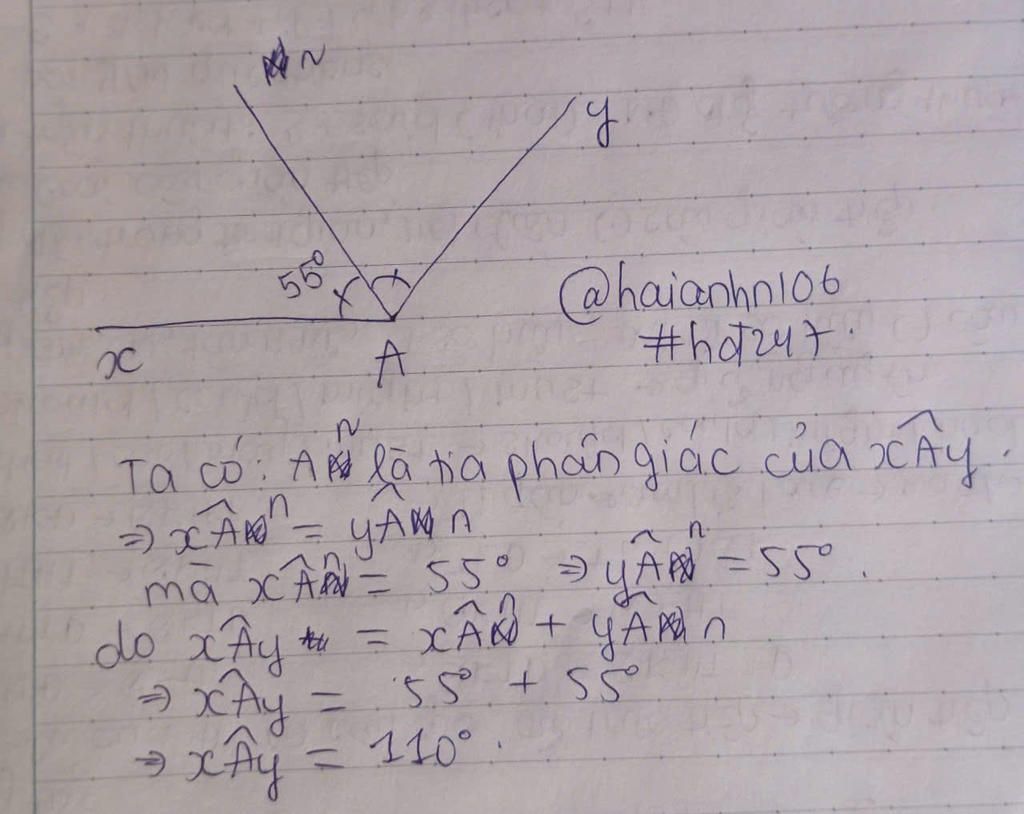 n
y
55°
x
A
@haianhn106
#hdt247.
Ta có: An là tia phân giác của xÂy.
⇒ xÂn = yÂn
mà xÂn = 55° ⇒ yÂn = 55°.
do xÂy = xÂn + yÂn
⇒ xÂy = 55° + 55°
⇒ xÂy = 110°.